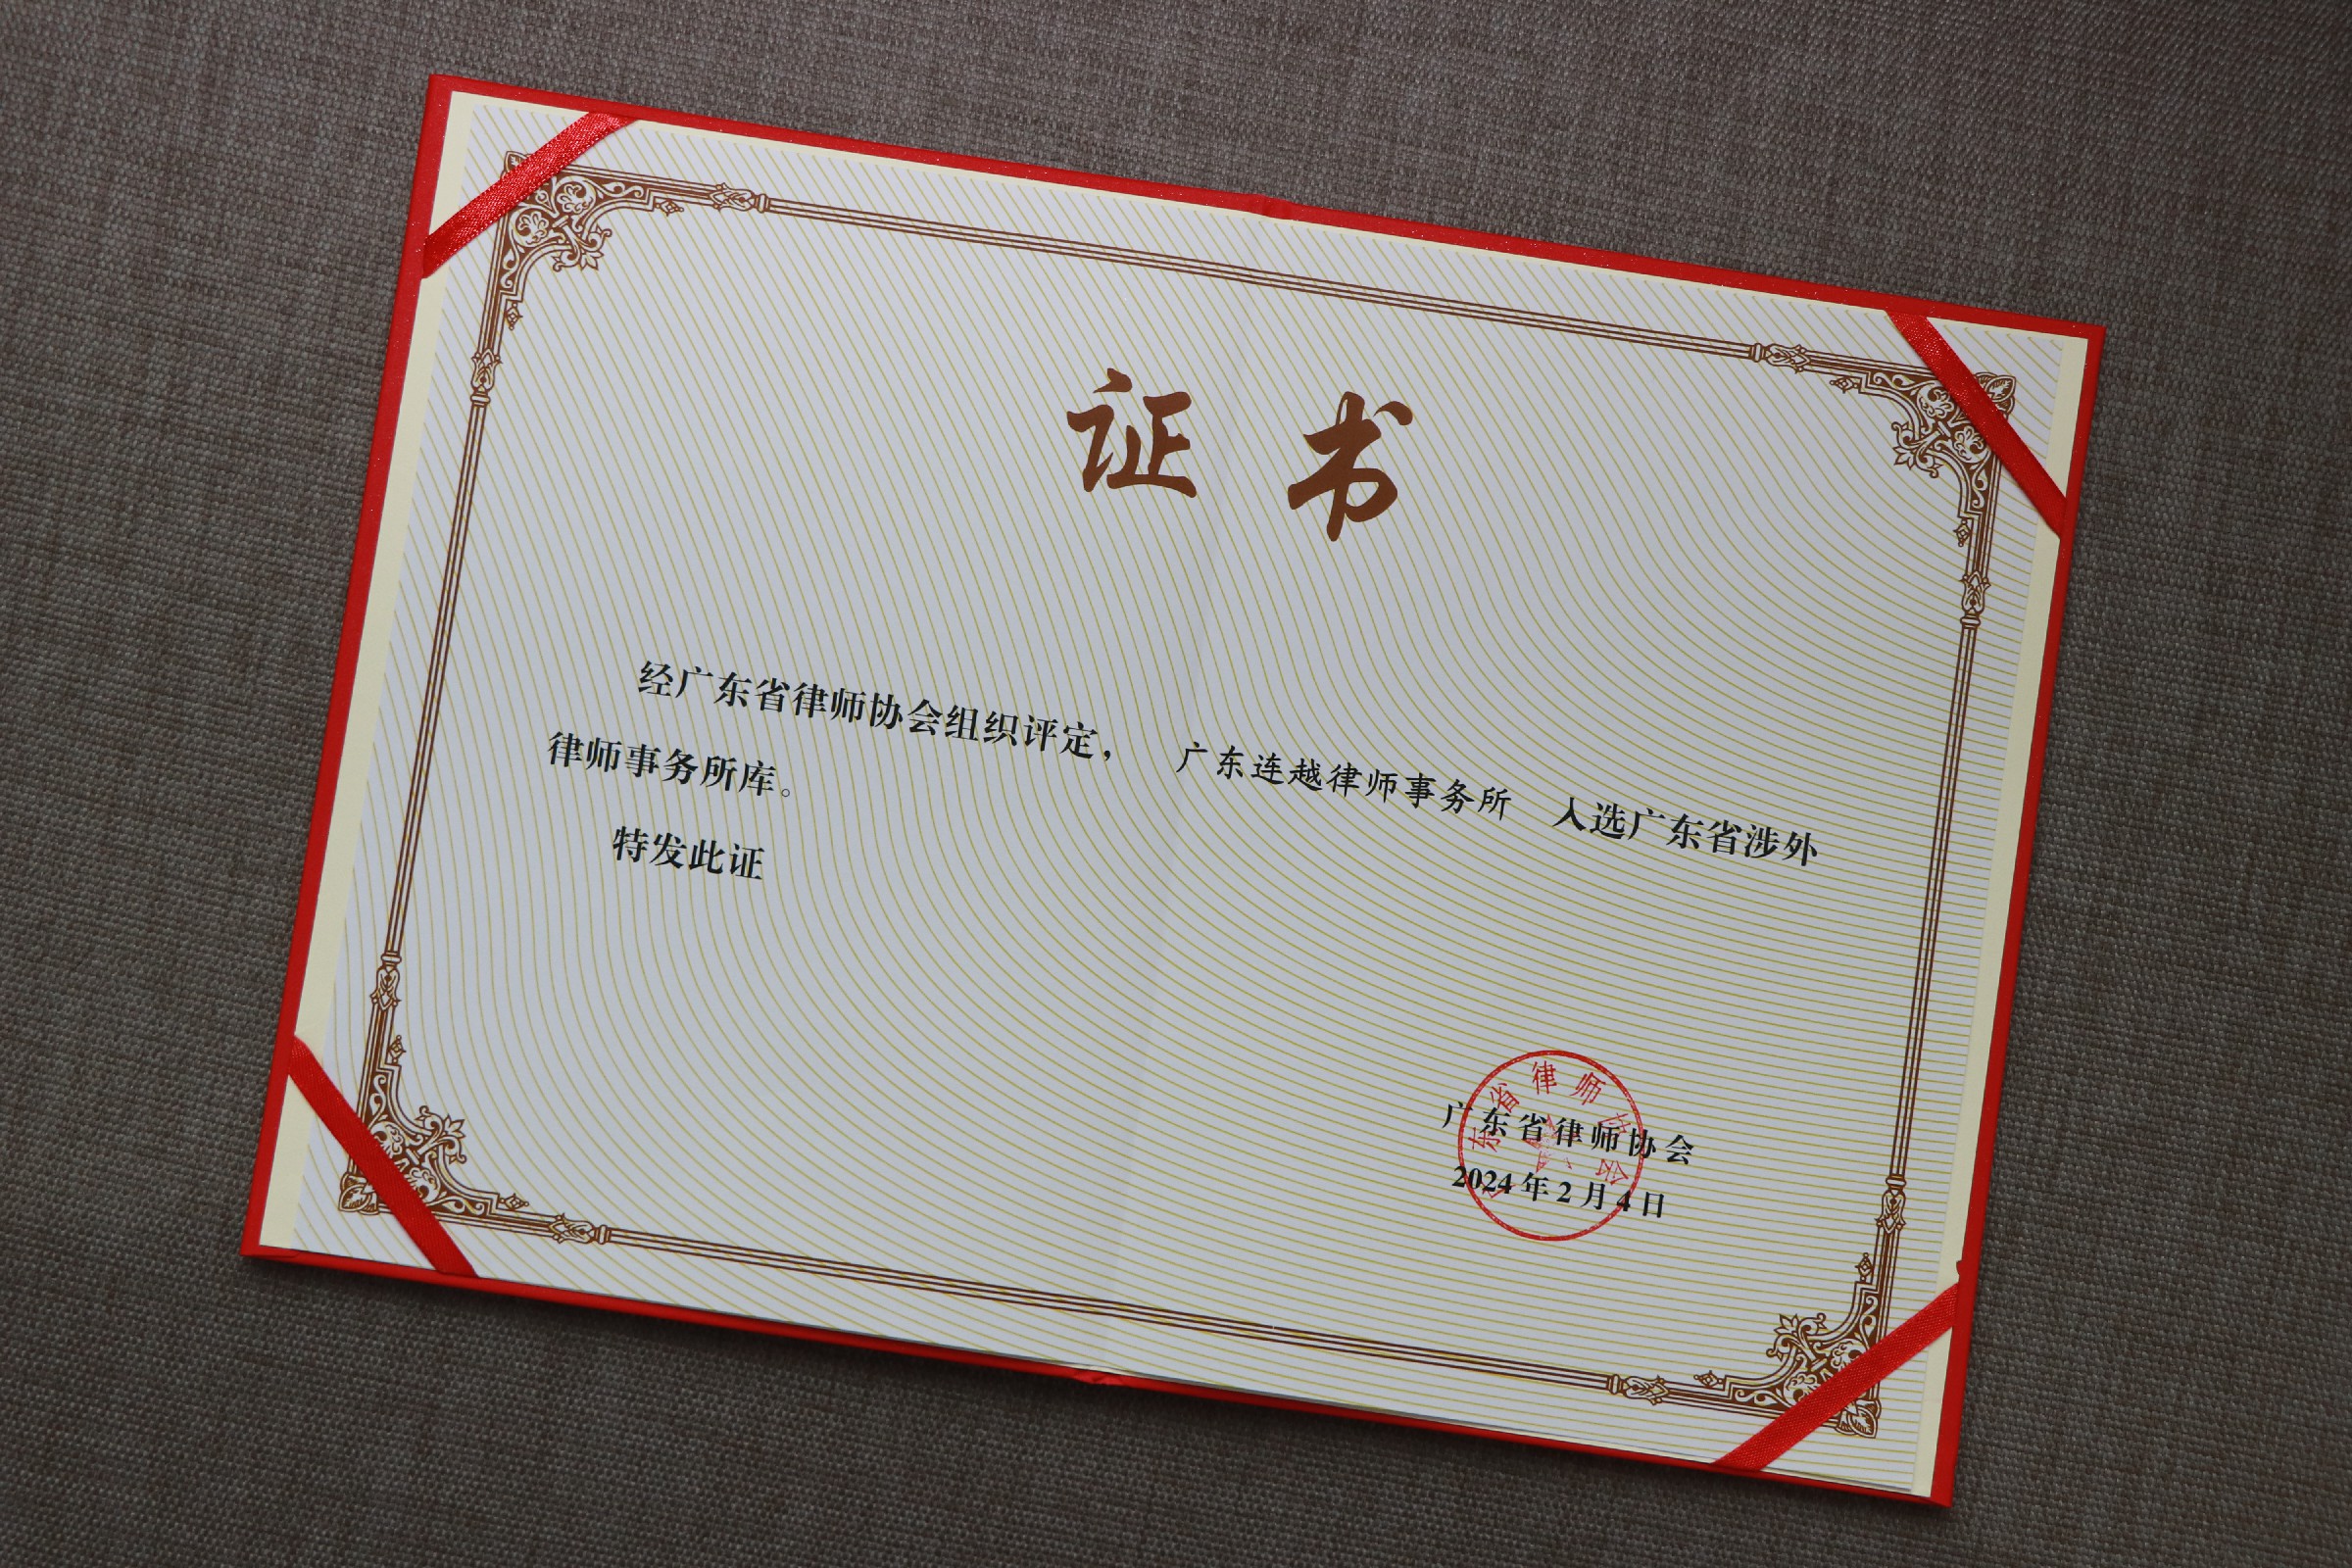 证书
经广东省律师协会组织评定， 广东连越律师事务所 入选广东省涉外
律师事务所库。
特发此证
广东省律师协会
2024年2月4日
东省律师协会